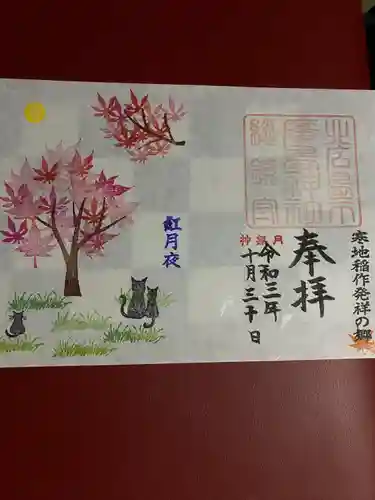 寒地稲作発祥の郷
奉拝
北広島市
廣島神社
総鎮守
神無月
令和三年
十月三十日
紅月夜